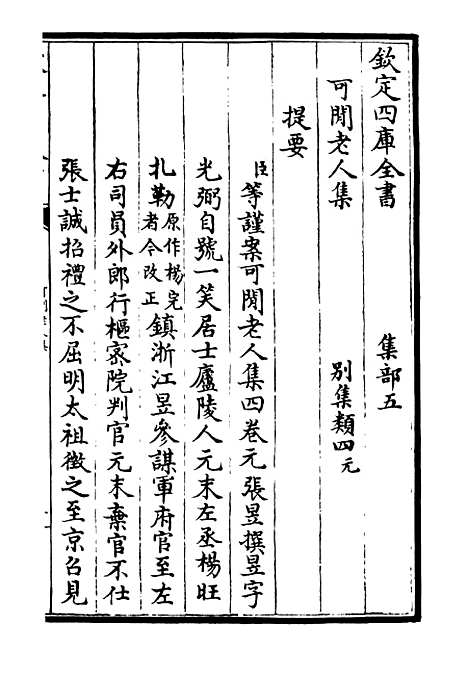 欽定四庫全書　集部五
可閒老人集　別集類四元
提要
臣等謹案可閒老人集四卷元張昱撰昱字
光弼自號一笑居士廬陵人元末左丞楊旺
扎勒原作楊完者今改正鎮浙江昱參謀軍府官至左
右司員外郎行樞密院判官元末棄官不仕
張士誠招禮之不屈明太祖徵之至京召見